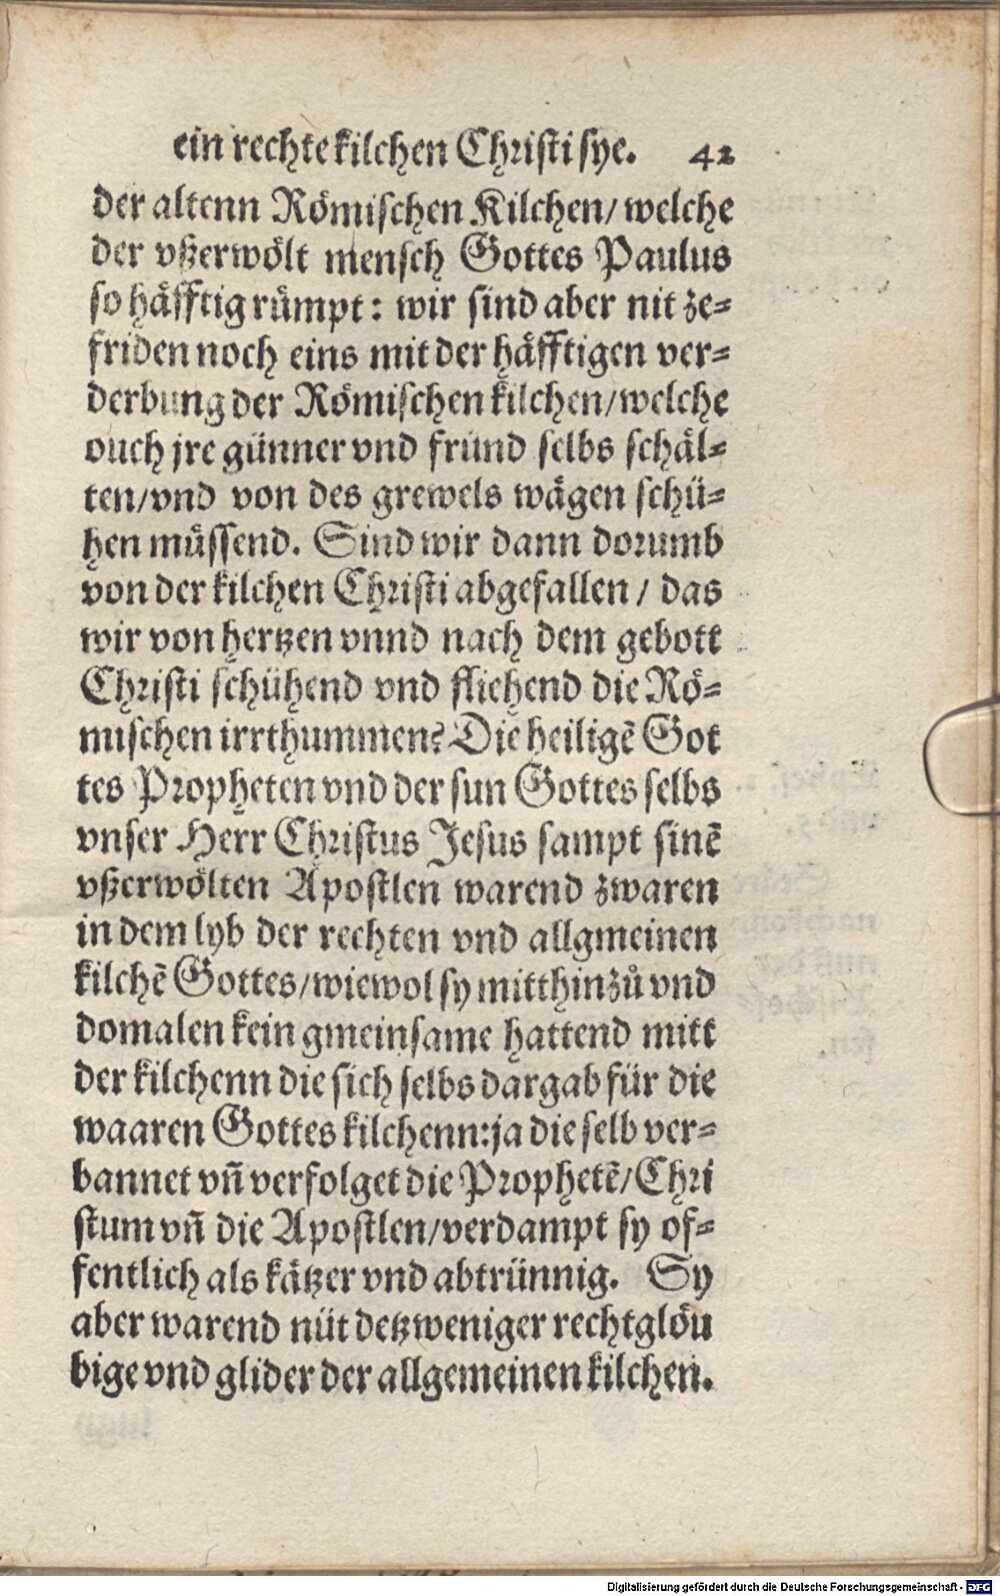 ein rechte kilchen Christi sye. 42
der altenn Römischen Kilchen/ welche
der vßerwölt mensch Gottes Paulus
so häfftig rümpt: wir sind aber nit ze-
friden noch eins mit der häfftigen ver-
derbung der Römischen kilchen/welche
ouch jre günner vnd fründ selbs schäl-
ten/vnd von des grewels wägen schü-
hen müssend. Sind wir dann dorumb
von der kilchen Christi abgefallen / das
wir von hertzen vnnd nach dem gebott
Christi schühend vnd fliehend die Rö-
mischen irrthummen? Die heiligē Got
tes Propheten vnd der sun Gottes selbs
vnser Herr Christus Jesus sampt sinē
vßerwölten Apostlen warend zwaren
in dem lyb der rechten vnd allgmeinen
kilchē Gottes/wiewol sy mitthinzů vnd
domalen kein gmeinsame hattend mitt
der kilchenn die sich selbs dargab für die
waaren Gottes kilchenn:ja die selb ver-
bannet vn̄ verfolget die Prophetē/Chri
stum vn̄ die Apostlen/verdampt sy of-
fentlich als kätzer vnd abtrünnig. Sy
aber warend nüt detz weniger rechtglöu
bige vnd glider der allgemeinen kilchen.
Digitalisierung gefördert durch die Deutsche Forschungsgemeinschaft - DFG